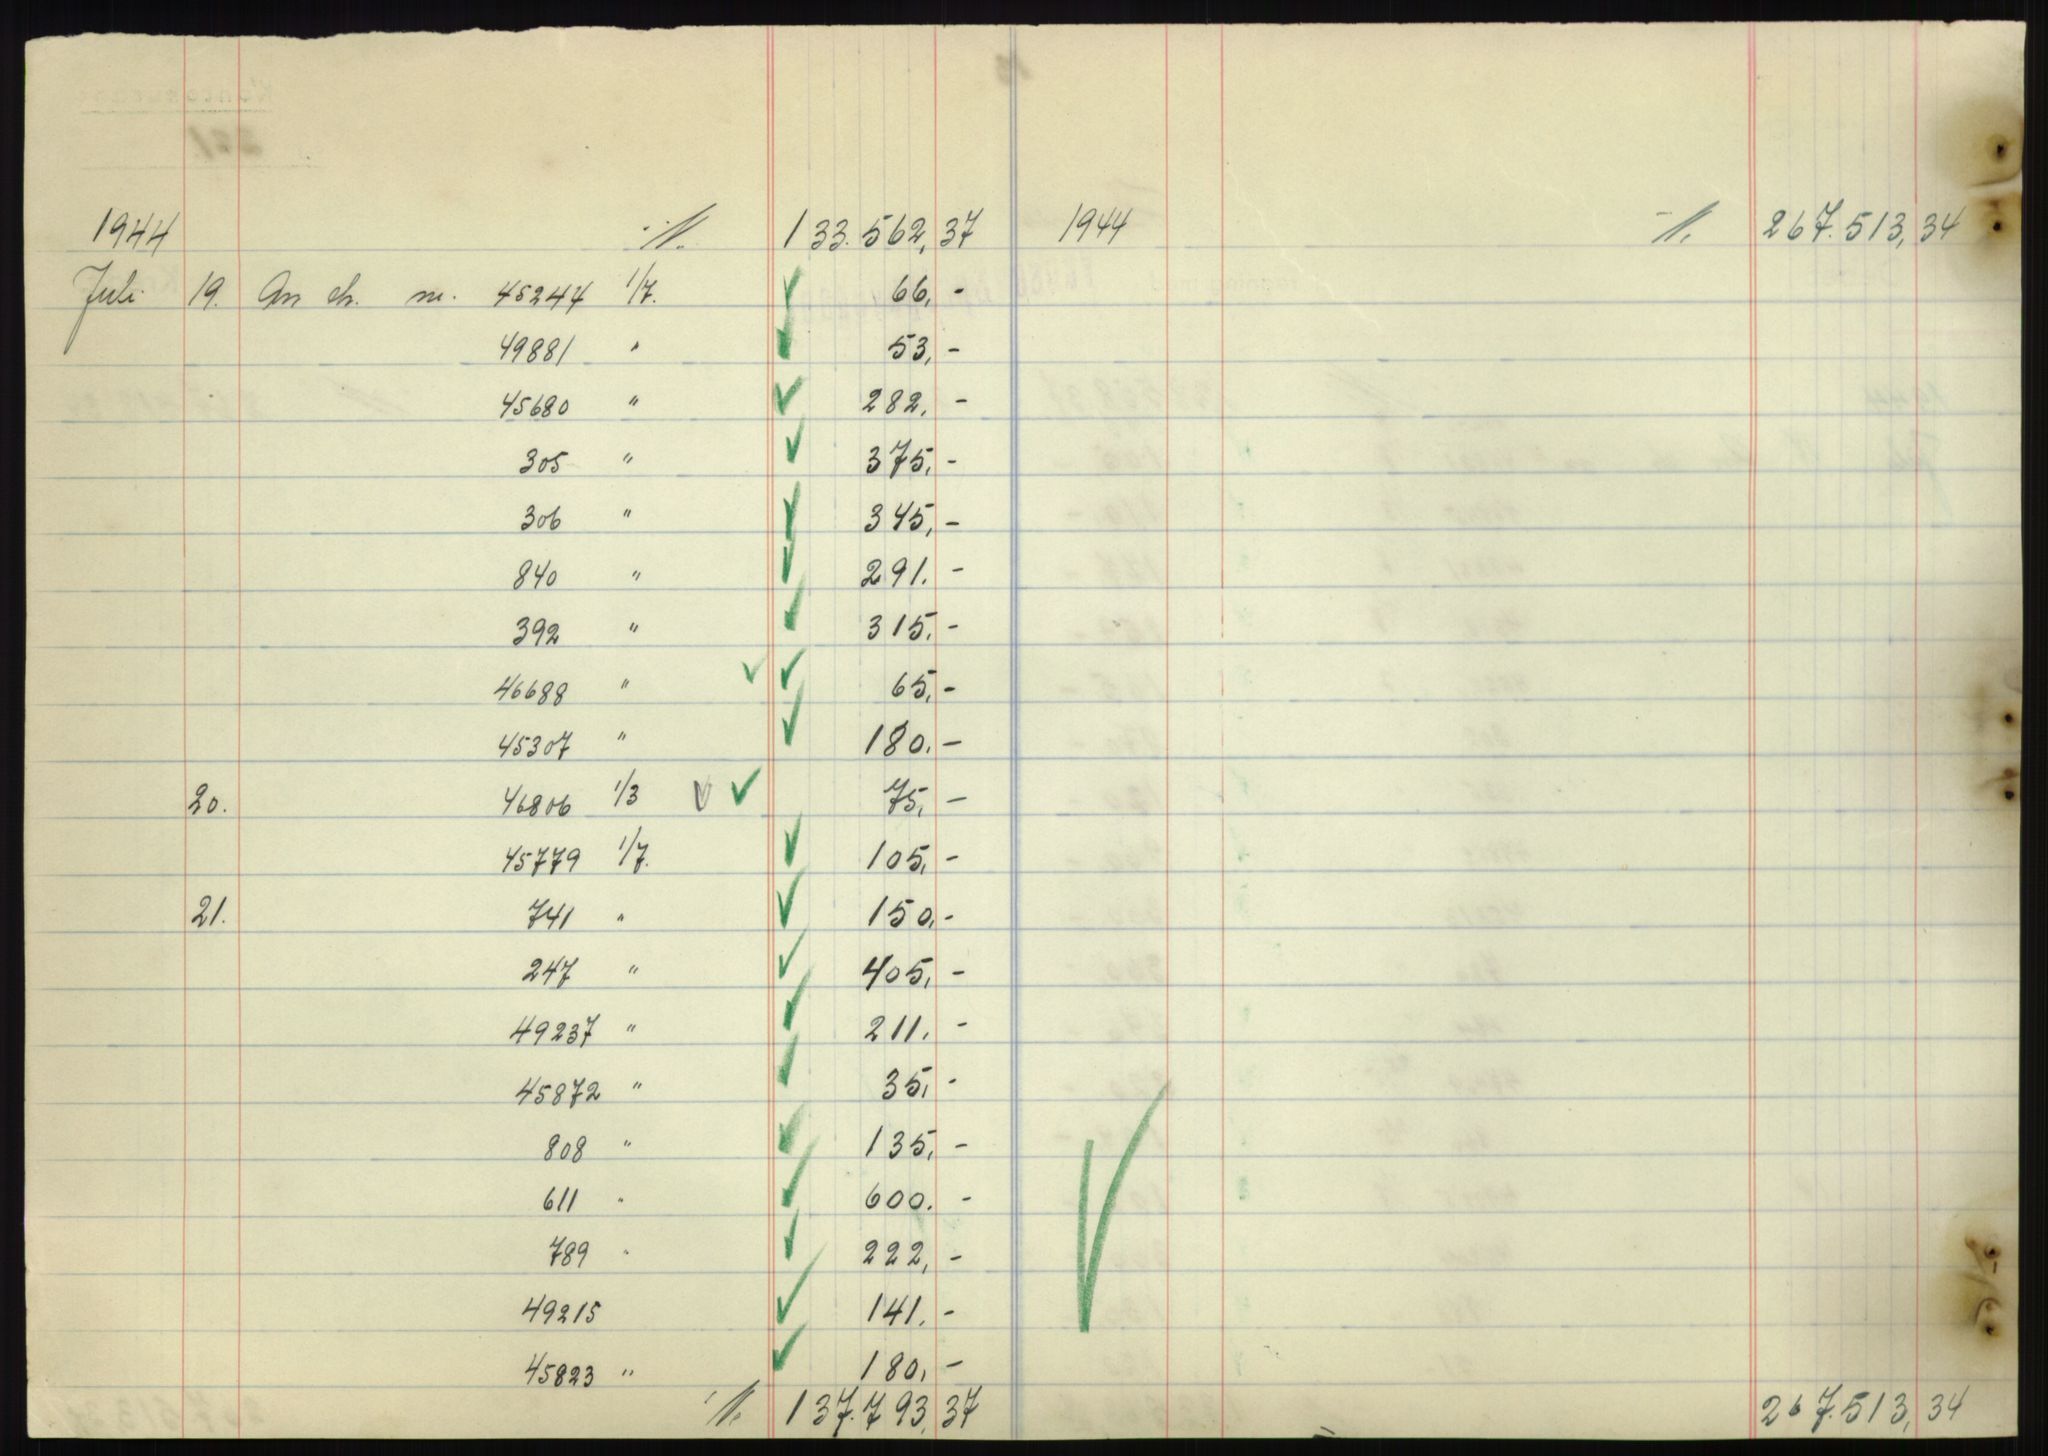 1944 133.562,37 1944 267.513,34
Juli 19. An ch. nr. 45244 1/7. 66,-
49881 " 53,-
45680 " 282,-
305 " 375,-
306 " 345,-
840 " 291.-
392 " 315.-
46688 " 65,-
45307 " 180.-
20. 46806 1/3 75,-
45779 1/7. 105,-
21. 741 " 150,-
247 " 405,-
49237 " 211.-
45872 " 35,-
808 " 135,-
611 " 600.-
789 " 222,-
49215 141.-
45823 " 180,-
137.793,37 267.513,34